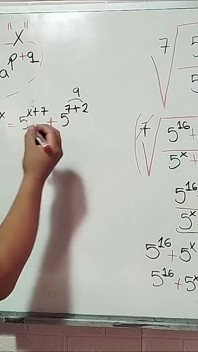 "x"
a^{p+q}
x = 5^{x+7} + 5^{7+2}
9
7√ 5
5
(7√ 5^{16} +
5^x +
5^{16}
5^x
5^{16} + 5^x
5^{16} + 5^x